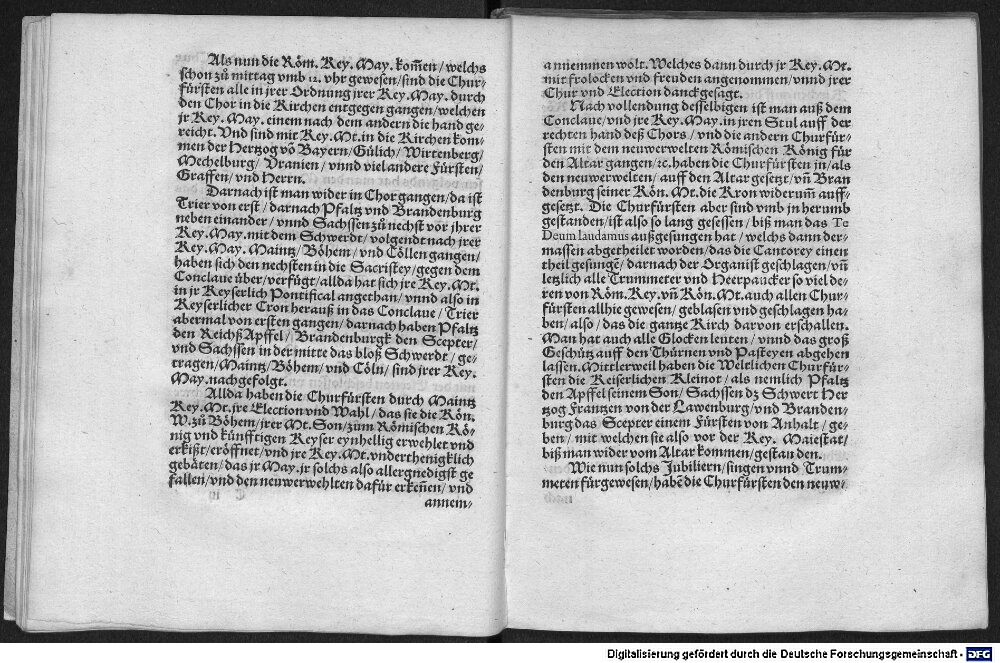 Als nun die Röm. Key. May. kom̃en / welchs
schon zů mittag vmb 12. vhr gewesen / sind die Chur-
fürsten alle in jrer Ordnung jrer Key. May. durch
den Chor in die Kirchen entgegen gangen / welchen
jr Key. May. einem nach dem andern die hand ge-
reicht. Vnd sind mit Key. Mt. in die Kirchen kom-
men der Hertzog võ Bayern / Gülich / Wirtenberg /
Mechelburg / Vranien / vnnd viel andere Fürsten /
Graffen / vnd Herrn.
Darnach ist man wider in Chor gangen / da ist
Trier von erst / darnach Pfaltz vnd Brandenburg
neben einander / vnnd Sachssen zů nechst vor jhrer
Key. May. mit dem Schwerdt / volgendt nach jrer
Key. May. Maintz / Böhem / vnd Cöllen gangen /
haben sich den nechsten in die Sacristey / gegen dem
Conclaue über / verfügt / allda hat sich jre Key. Mt.
in jr Keyserlich Pontifical angethan / vnnd also in
Keyserlicher Cron herauß in das Conclaue / Trier
abermal von ersten gangen / darnach haben Pfaltz
den Reichß Apffel / Brandenburgk den Scepter /
vnd Sachssen in der mitte das bloß Schwerdt / ge-
tragen / Maintz / Böhem / vnd Cöln / sind jrer Key.
May. nachgefolgt.
Allda haben die Churfürsten durch Maintz
Key. Mt. jre Election vnd Wahl / das sie die Kön.
W. zů Böhem / jrer Mt. Son / zum Römischen Kö-
nig vnd künfftigen Keyser eynhellig erwehlet vnd
erkißt / eröffnet / vnd jre Key. Mt. vnderthenigklich
gebäten / das jr May. jr solchs also allergnedigst ge
fallen / vnd den neuwerwehlten dafür erkeñen / vnd
annem-
a nniemmen wölt. Welches dann durch jr Key. Mt.
mit frolocken vnd freuden angenommen / vnnd jrer
Chur vnd Election danckgesagt.
Nach vollendung desselbigen ist man auß dem
Conclaue / vnd jre Key. May. in jren Stul auff der
rechten hand deß Chors / vnd die andern Churfür-
sten mit dem neuwerwelten Römischen König für
den Altar gangen / ꝛc. haben die Churfürsten in / als
den neuwerwelten / auff den Altar gesetzt / vñ Bran
denburg seiner Kön. Mt. die Kron widerum̃ auff-
gesetzt. Die Churfürsten aber sind vmb jn herumb
gestanden / ist also so lang gesessen / biß man das Te
Deum laudamus außgesungen hat / welchs dann der-
massen abgetheilet worden / das die Cantorey einen
theil gesungẽ / darnach der Organist geschlagen / vñ
letzlich alle Trummeter vnd Heerpaucker so viel de-
ren von Röm. Key. vñ Kön. Mt. auch allen Chur-
fürsten allhie gewesen / geblasen vnd geschlagen ha-
ben / also / das die gantze Kirch darvon erschallen.
Man hat auch alle Glocken leuten / vnnd das groß
Geschütz auff den Thürnen vnd Pasteyen abgehen
lassen. Mittlerweil haben die Weltlichen Churfür-
sten die Keiserlichen Kleinot / als nemlich Pfaltz
den Apffel seinem Son / Sachssen dz Schwert Her
tzog Frantzen von der Lawenburg / vnd Branden-
burg das Scepter einem Fürsten von Anhalt / ge-
ben / mit welchen sie also vor der Key. Maiestat /
biß man wider vom Altar kommen / gestan den.
Wie nun solchs Jubiliern / singen vnnd Trum-
meten fürgewesen / habẽ die Churfürsten den neuw-
Digitalisierung gefördert durch die Deutsche Forschungsgemeinschaft - DFG